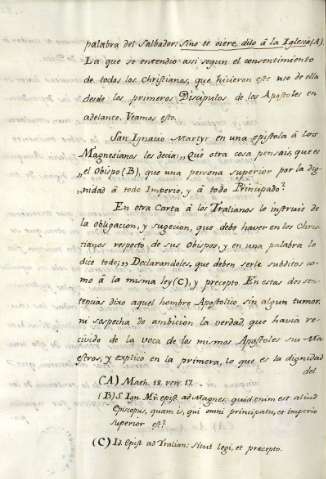 palabra del Salbador: Sino te oiere, dilo à la Iglesia (A).
La que se entendio assi segun el consentimiento
de todos los Christianos, que hivieron este uso de ella
desde los primeros Discipulos de los Apostoles en
adelante. Veamos esto.
San Ignacio Martyr en una epistola à los
Magnesianos les decia,, Que otra cosa pensais, que es
„ el obispo (B), que una persona superior por la dig
„nidad à todo Imperio, y à todo Principado?
En otra Carta à los Tralianos lo instruie de
la obligacion, y sugecion, que debe haver en los Chris
tianos respecto de sus obispos, y en una palabra lo
dice todo,, Declarandoles, que deben serle subditos co
mo à la misma ley (C), y precepto. En estas dos sen
tencias dixo aquel hombre Apostolico sin algun tumor,
ni sospecha de ambicion la verdad, que havia re
civido de la voca de los mismos Apostoles sus Ma
estros, y explicò en la primera, lo que es la dignidad
del
(A) Math. 18. vers. 17.
(B) S. Ign. Mr. epist. ad Magnes. quid enim est aliud
Episcopus, quam is, qui omni principatu, et imperio
superior est?
(C) Id. Epist. ad Tralian: Sicut legi, et precepto.